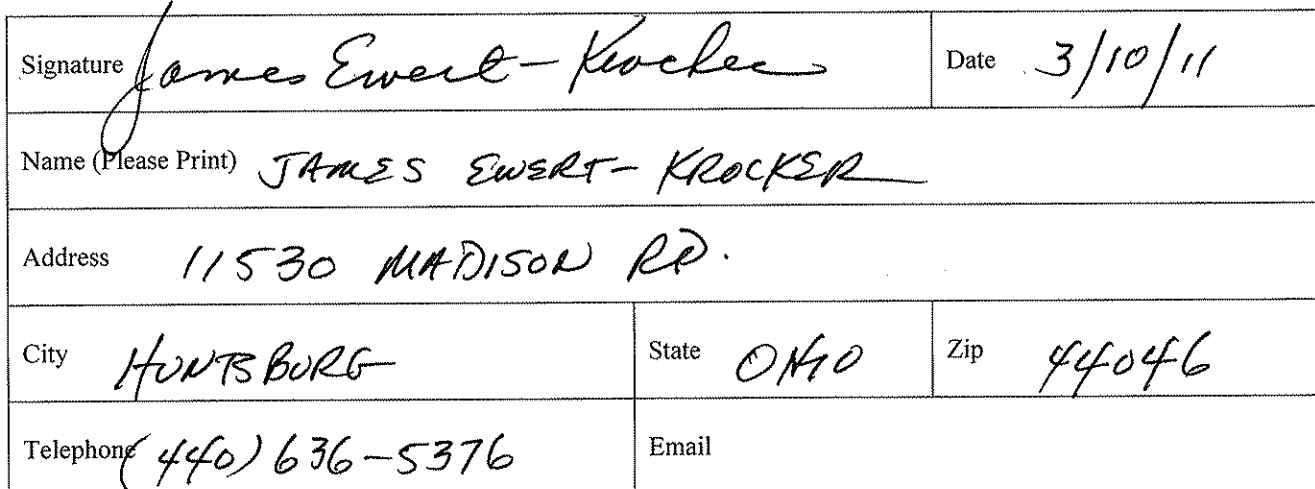 Signature James Ewert-Krocker Date 3/10/11
Name (Please Print) JAMES EWERT-KROCKER
Address 11530 MADISON RD.
City HUNTSBURG State OHIO Zip 44046
Telephone (440) 636-5376 Email